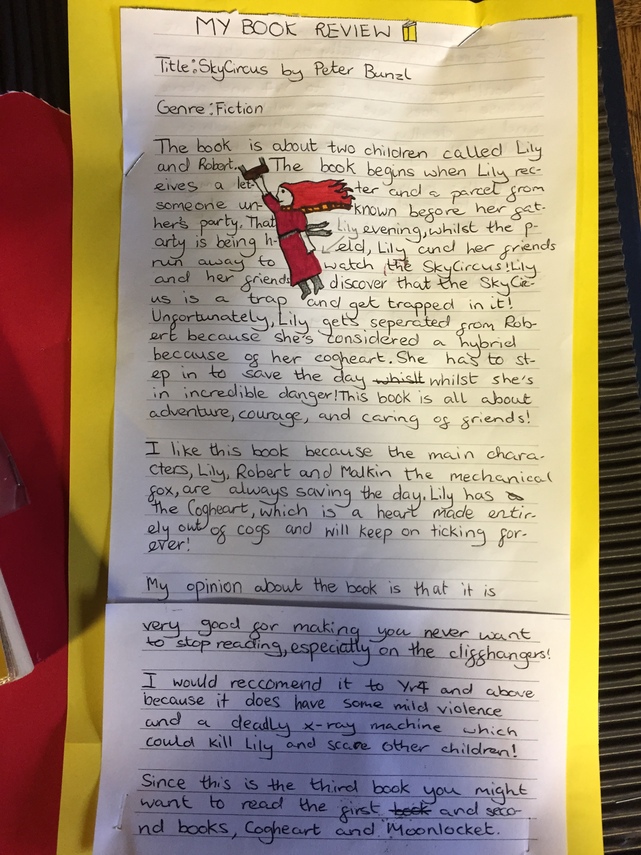 MY BOOK REVIEW
Title: SkyCircus by Peter Bunzl
Genre: Fiction
The book is about two children called Lily
and Robert. The book begins when Lily rec-
eives a let- ter and a parcel from
someone un- known before her fat-
her's party. That Lily evening, whilst the p-
arty is being h- eld, Lily and her friends
run away to watch the SkyCircus! Lily
and her friends discover that the SkyCirc-
us is a trap and get trapped in it!
Unfortunately, Lily gets seperated from Rob-
ert because she's considered a hybrid
because of her cogheart. She has to st-
ep in to save the day whislt whilst she's
in incredible danger! This book is all about
adventure, courage, and caring of friends!
I like this book because the main chara-
cters, Lily, Robert and Malkin the mechanical
fox, are always saving the day. Lily has a
the Cogheart, which is a heart made entir-
ely out of cogs and will keep on ticking for-
ever!
My opinion about the book is that it is
very good for making you never want
to stop reading, especially on the cliffhangers!
I would reccomend it to Yr4 and above
because it does have some mild violence
and a deadly x-ray machine which
could kill Lily and scare other children!
Since this is the third book you might
want to read the first book and seco-
nd books, Cogheart and Moonlocket.